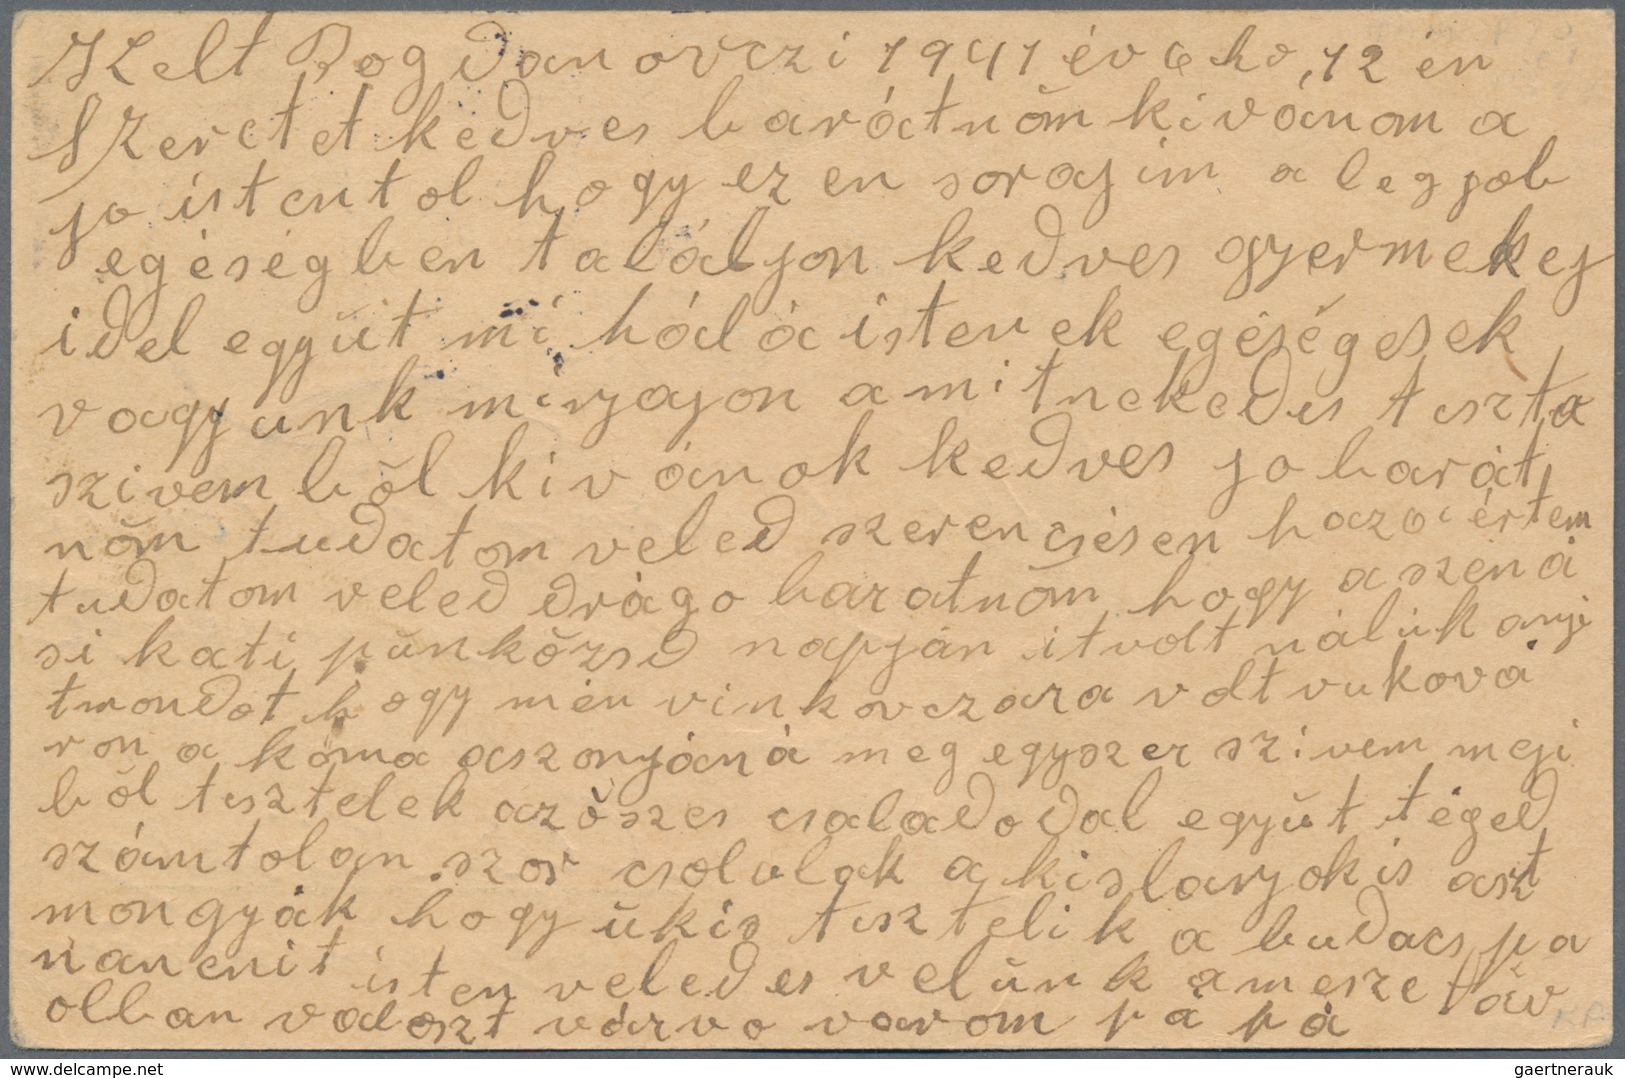 Kelt Bogdanovczi 1941 év 6 ho, 12 én
Szeretet kedves barátnöm kivánom a
jo istentol hogy ezen sorajim a legjob
egéségben talályon kedves gyermekej
idel együt mi hálá istenek egéségesek
vagyunk mi amit neked is tiszta
szivemböl kivánok kedves jo barát
nöm tudatom veled szerencsésen haza értem
tudatom veled drága baratnöm hogy a szená
si kati pünközsd napján it volt nálúk anyi
t mondot hogy mén vinkovczara volt vukova
ron a koma aszonyáná meg egyszer szivem meji
böl tisztelek az öszes csaladodal együt téged
számtolan szor csolulak a kislanyok is aszt
mongyák hogy ük is tisztelik a budacs pa
nan cnit isten veled es velünk a mesze táv
olban valoszt várva varom pá pá
KR.
www.delcampe.net
gaertnerauk